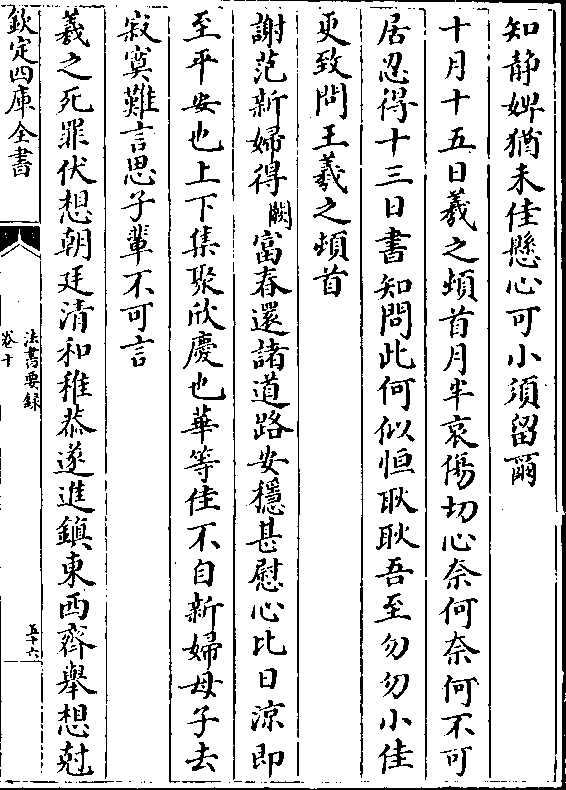 知静婢猶未佳懸心可小須留爾
十月十五日羲之頓首月半哀傷切心奈何奈何不可
居忍得十三日書知問此何似恒耿耿吾至勿勿小佳
更致問王羲之頓首
謝范新婦得闕富春還諸道路安穩甚慰心比日涼即
至平安也上下集聚欣慶也華等佳不自新婦母子去
寂寞難言思子輩不可言
羲之死罪伏想朝廷清和稚恭遂進鎮東西齊舉想尅
欽定四庫全書
法書要録
卷十
五十六